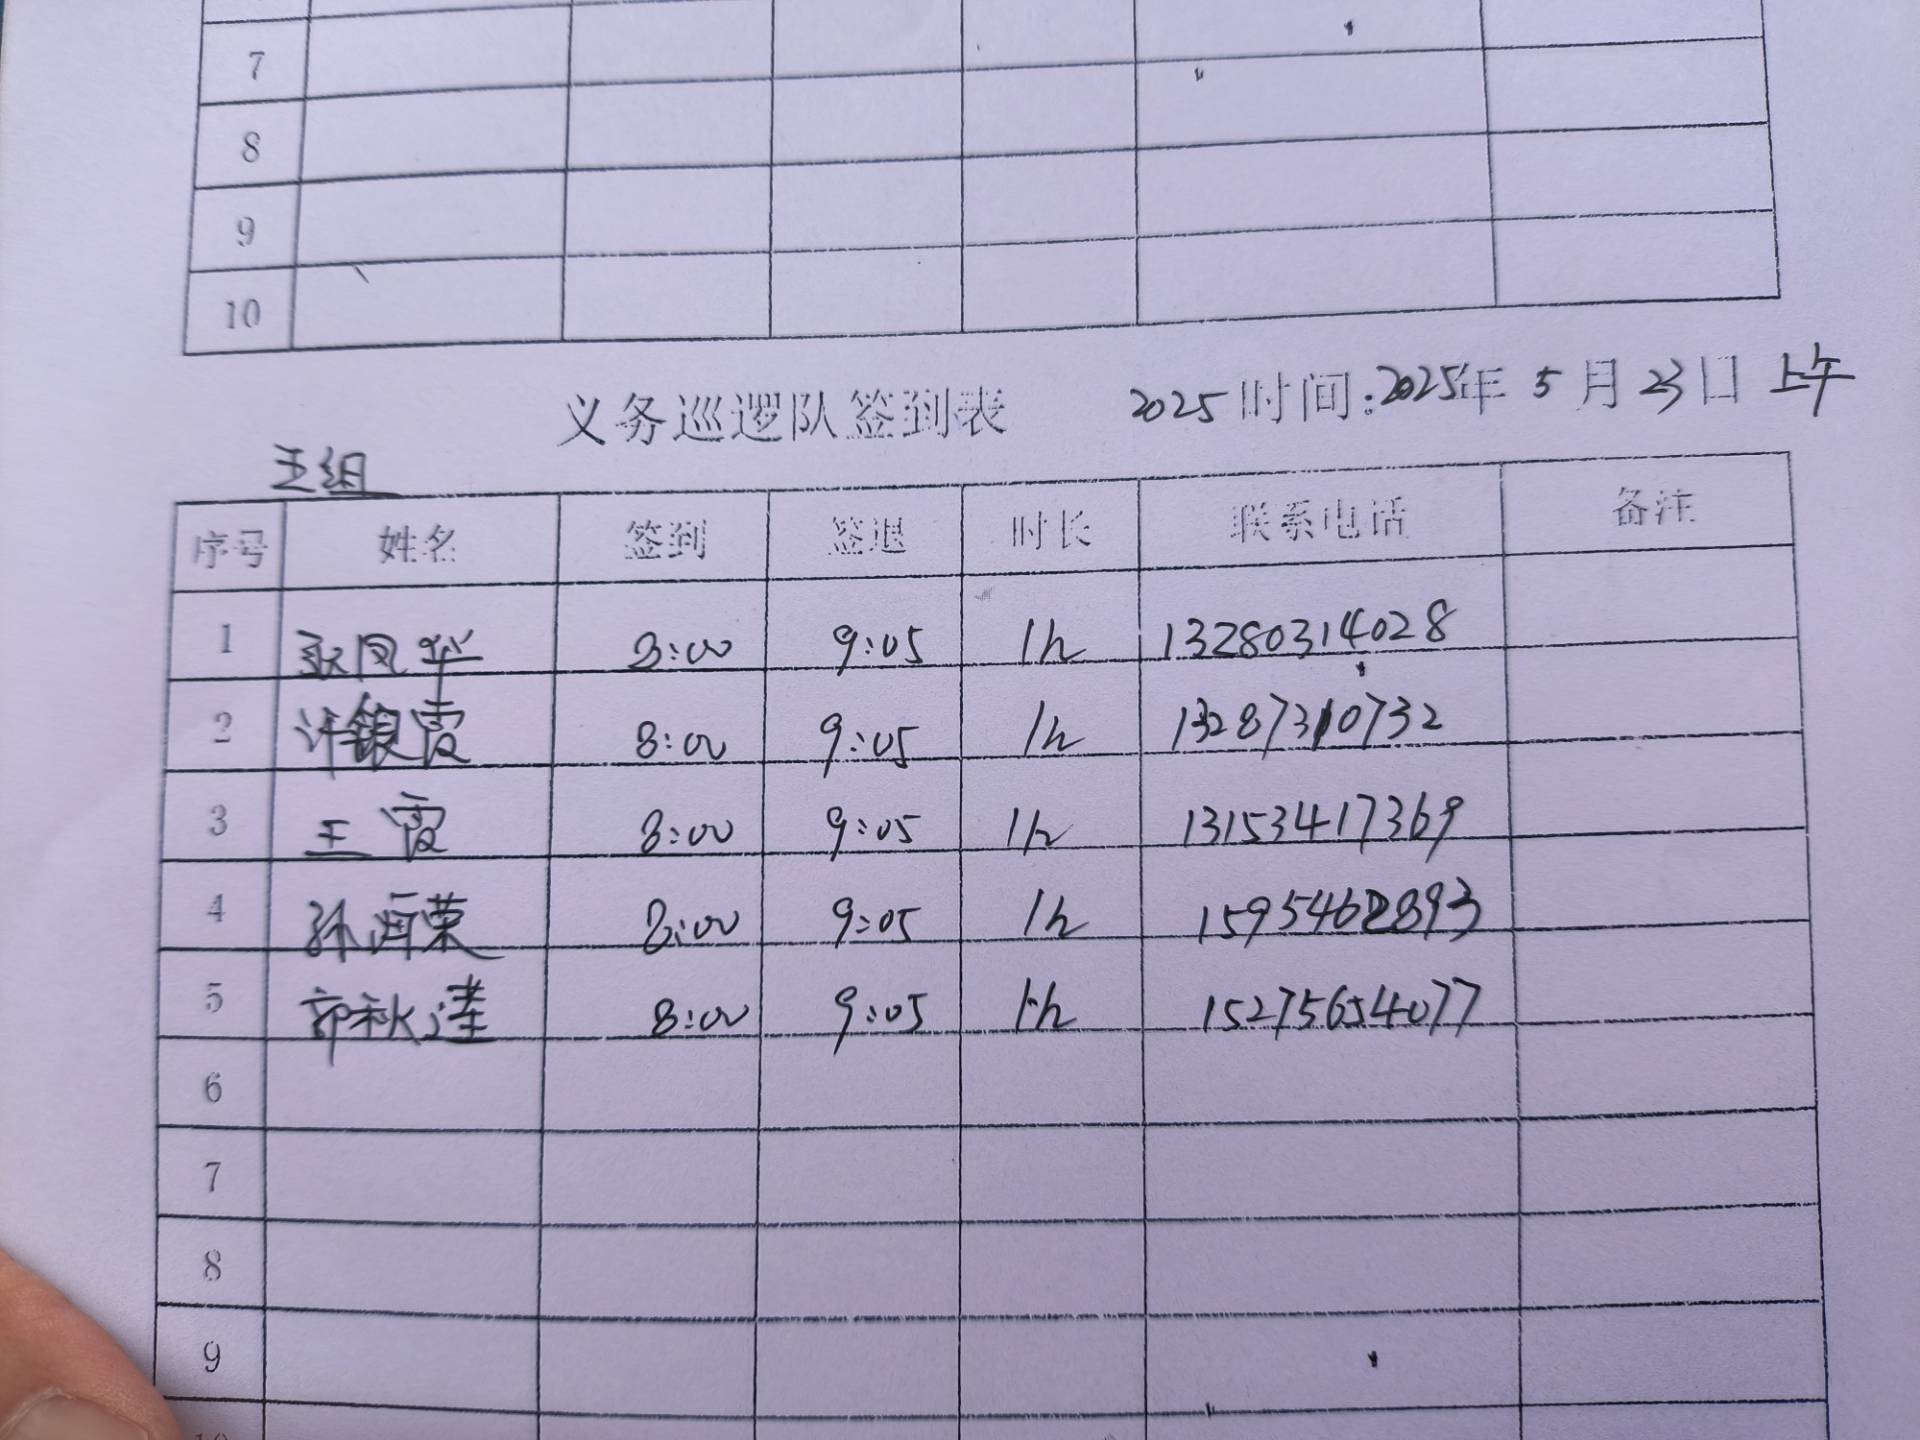 7
8
9
10
义务巡逻队签到表 2025时间:2025年5月23日上午
王组
序号 姓名 签到 签退 时长 联系电话 备注
1 张凤华 8:00 9:05 1h 13280314028
2 许银霞 8:00 9:05 1h 13287310732
3 王霞 8:00 9:05 1h 13153417369
4 孙海荣 8:00 9:05 1h 15954628893
5 郭秋莲 8:00 9:05 1h 15275654077
6
7
8
9
10